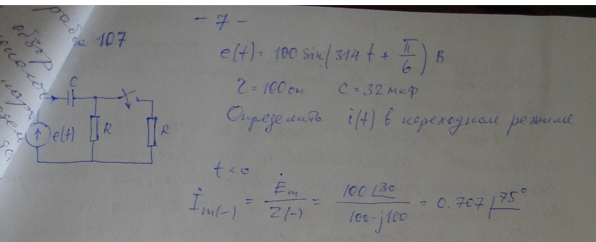 - 7 -
107
e(t) = 100 sin(314 t + π/6) В
r = 100 ом C = 32 мкф
Определить i(t) в переходном режиме
C
e(t)
R
R
t < 0
İm(-) = Ėm / Z(-) = 100∠30 / 100-j100 = 0.707∠75°